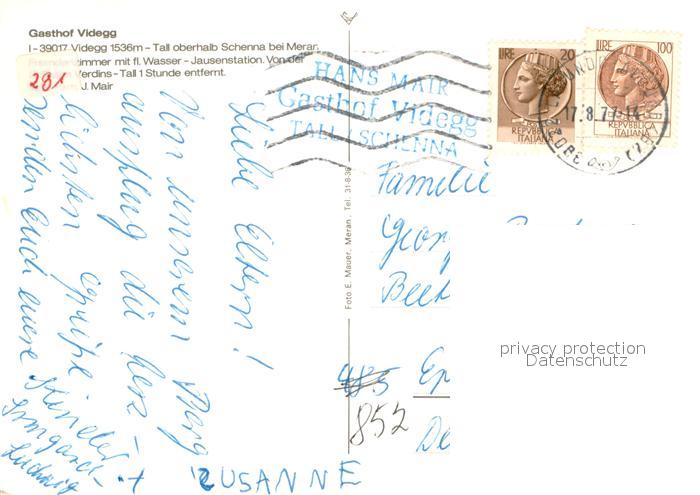 Gasthof Videgg
I-39017 Videgg 1536m – Tall oberhalb Schenna bei Meran.
zimmer mit fl. Wasser – Jausenstation. Von der
Verdins – Tall 1 Stunde entfernt.
J. Mair
281
HANS MAIR
Gasthof Videgg
TALL / SCHENNA
LIRE 20
REPVBBLICA
ITALIANA
LIRE 100
REPVBBLICA
ITALIANA
17.8.77-14
Foto E. Mauer, Meran, Tel. 31-8-38
Liebe Eltern!
Von unserem Berg
ausflug die herz
lichsten Grüße
senden Euch eure Kinder
Irmgard
Ludwig
+ SUSANNE
Familie
Georg
Beet
485
Ep
852
De
privacy protection
Datenschutz